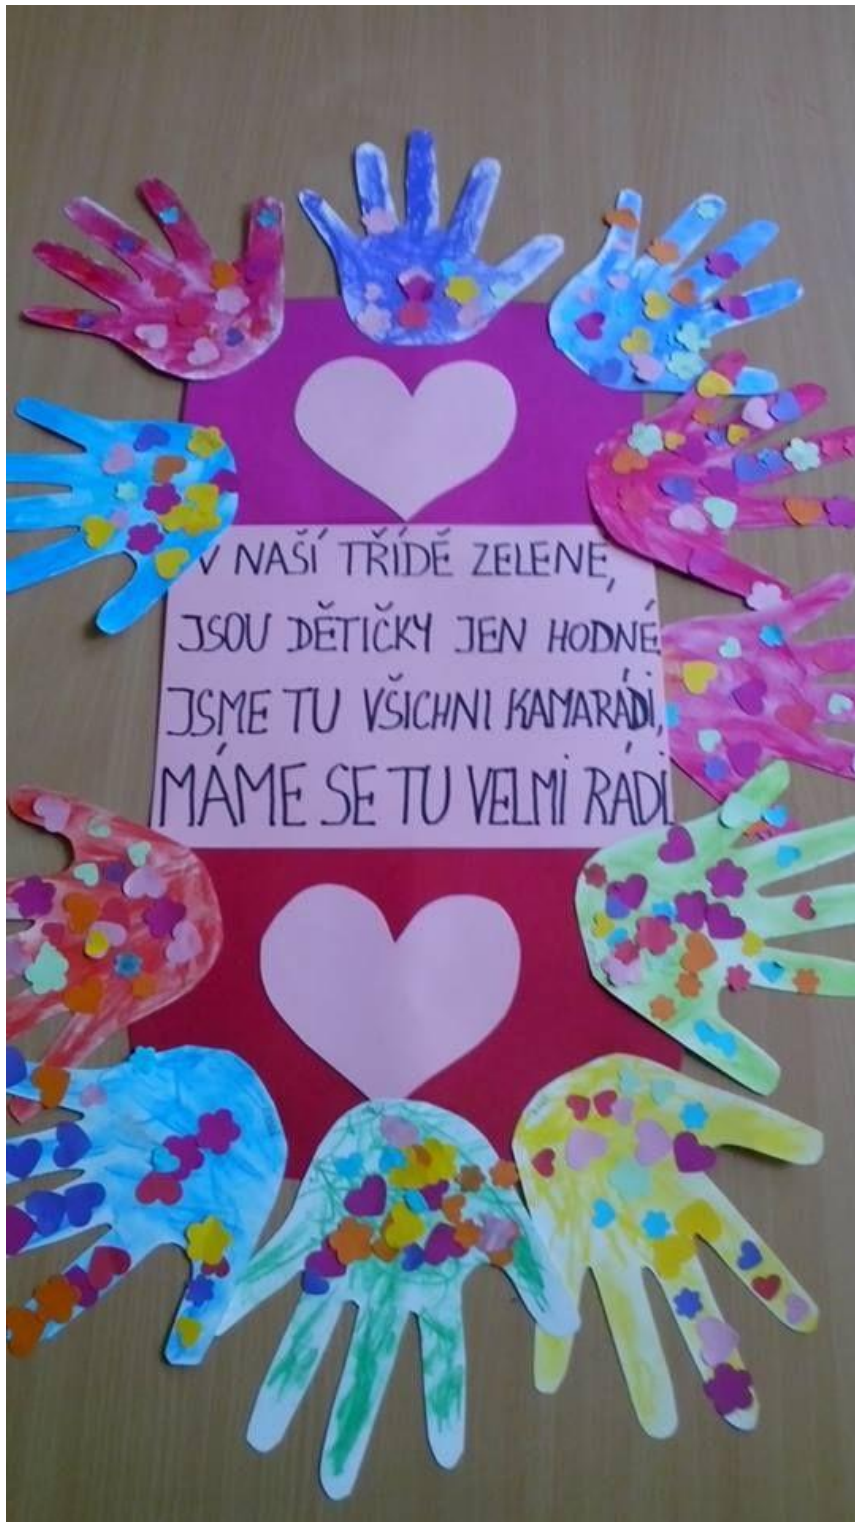 V NAŠÍ TŘÍDĚ ZELENE,
JSOU DĚTIČKY JEN HODNÉ
JSME TU VŠICHNI KAMARÁDI,
MÁME SE TU VELMI RÁDI